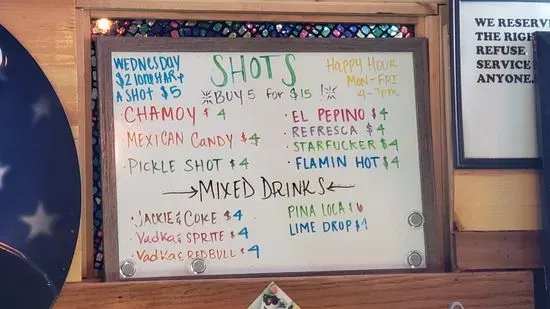 WEDNESDAY
$2 LONESTAR +
A SHOT $5
SHOTS
BUY 5 for $15!
HAPPY HOUR
MON-FRI
4-7pm
• CHAMOY $4
MEXICAN CANDY $4
PICKLE SHOT $4
• EL PEPINO $4
• REFRESCA $4
• STARFUCKER $4
• FLAMIN HOT $4
→MIXED DRINKS←
• JACKIE & COKE $4
• Vodka & SPRITE $4
• Vodka & REDBULL $4
PINA LOCA $6
LIME DROP $4
WE RESERVE
THE RIG
REFUSE
SERVICE
ANYONE.